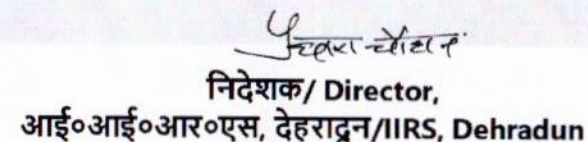 निदेशक/ Director,
आई०आई०आर०एस, देहरादून/IIRS, Dehradun